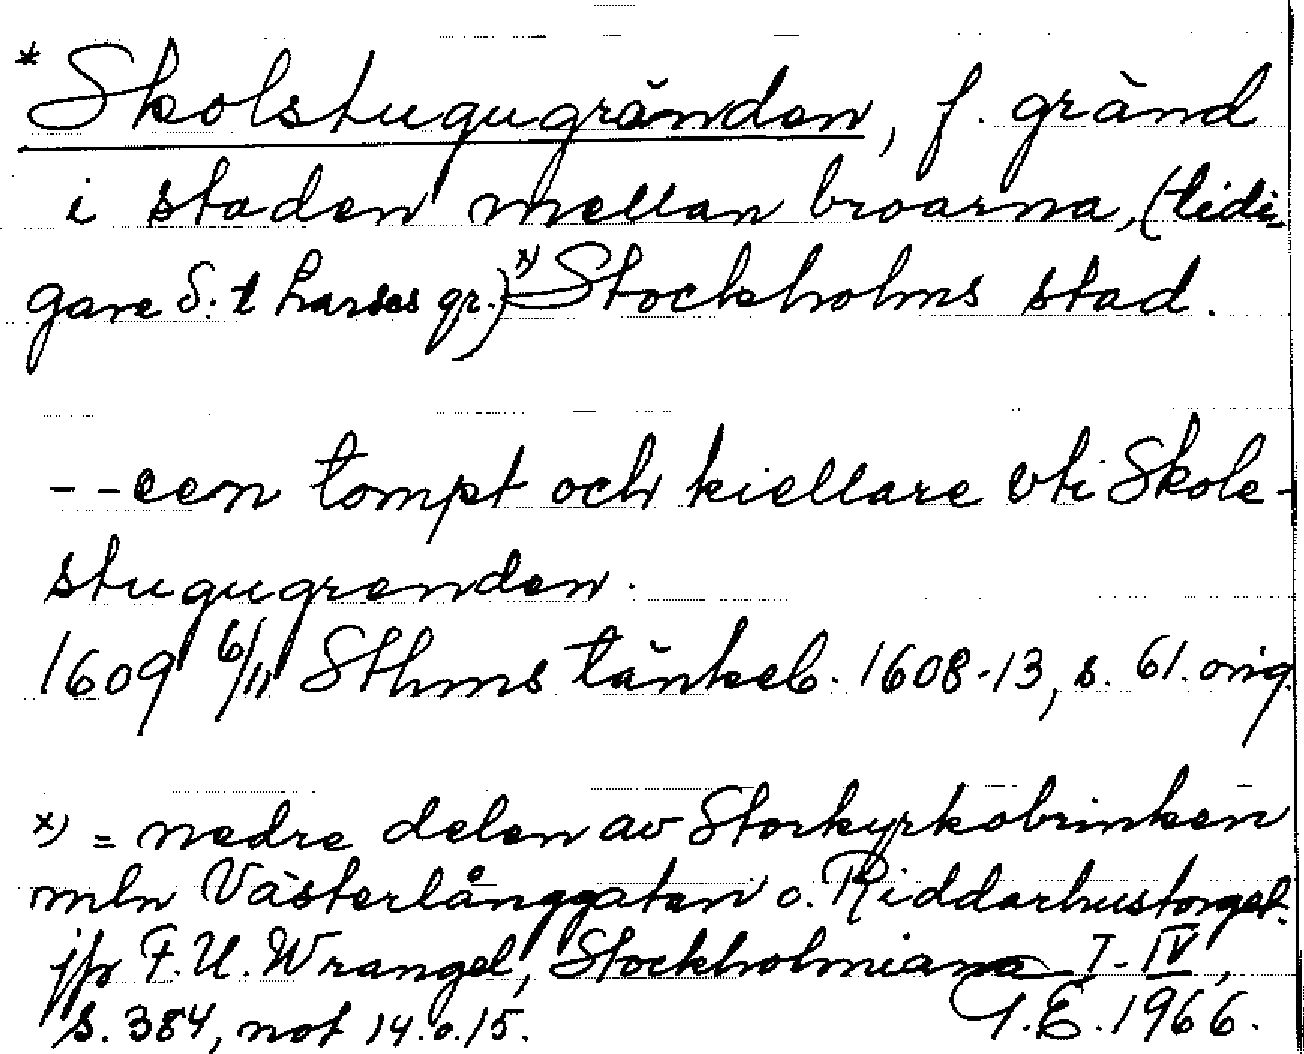 * Skolstugugränden, f. gränd
i staden mellan broarna, (tidi-
gare S:t Larses gr.) x) Stockholms stad.
- - een tompt och kiellare vti Skole-
stugugrenden.
1609 6/11 Sthms tänkeb. 1608-13, s. 61. orig.
x) = nedre delen av Storkyrkobrinken
mln Västerlånggatan o. Riddarhustorget.
jfr F.U. Wrangel, Stockholmiana I-IV,
s. 384, not 14.o.15. G.E. 1966.